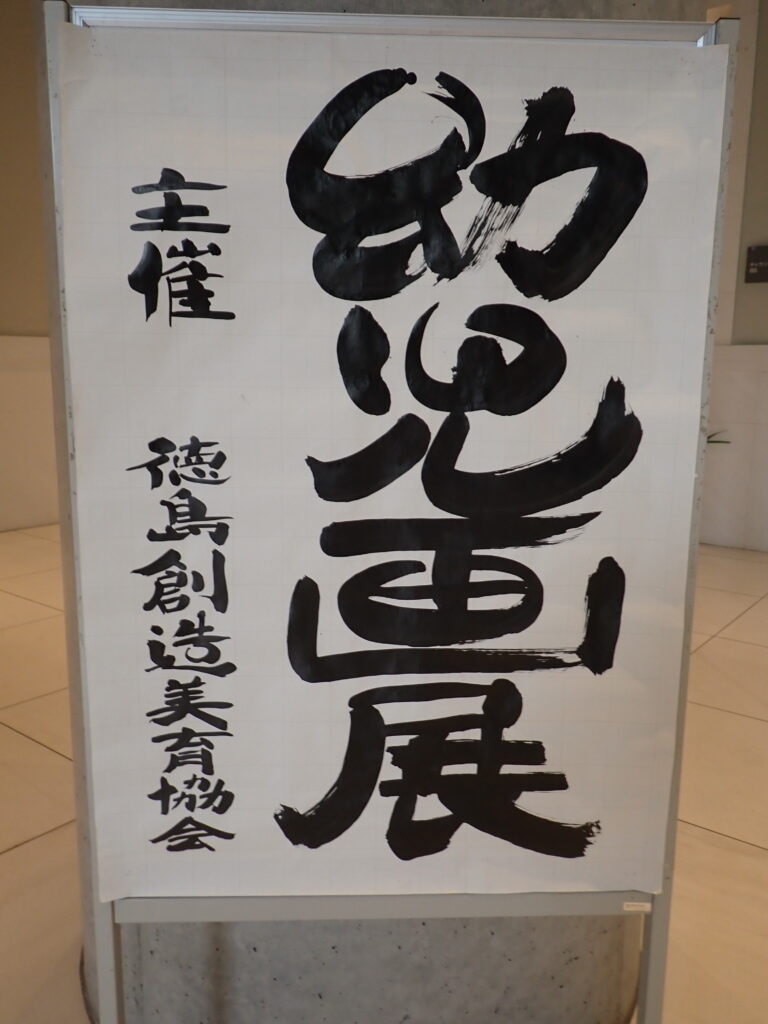 幼児画展
主催 徳島創造美育協会